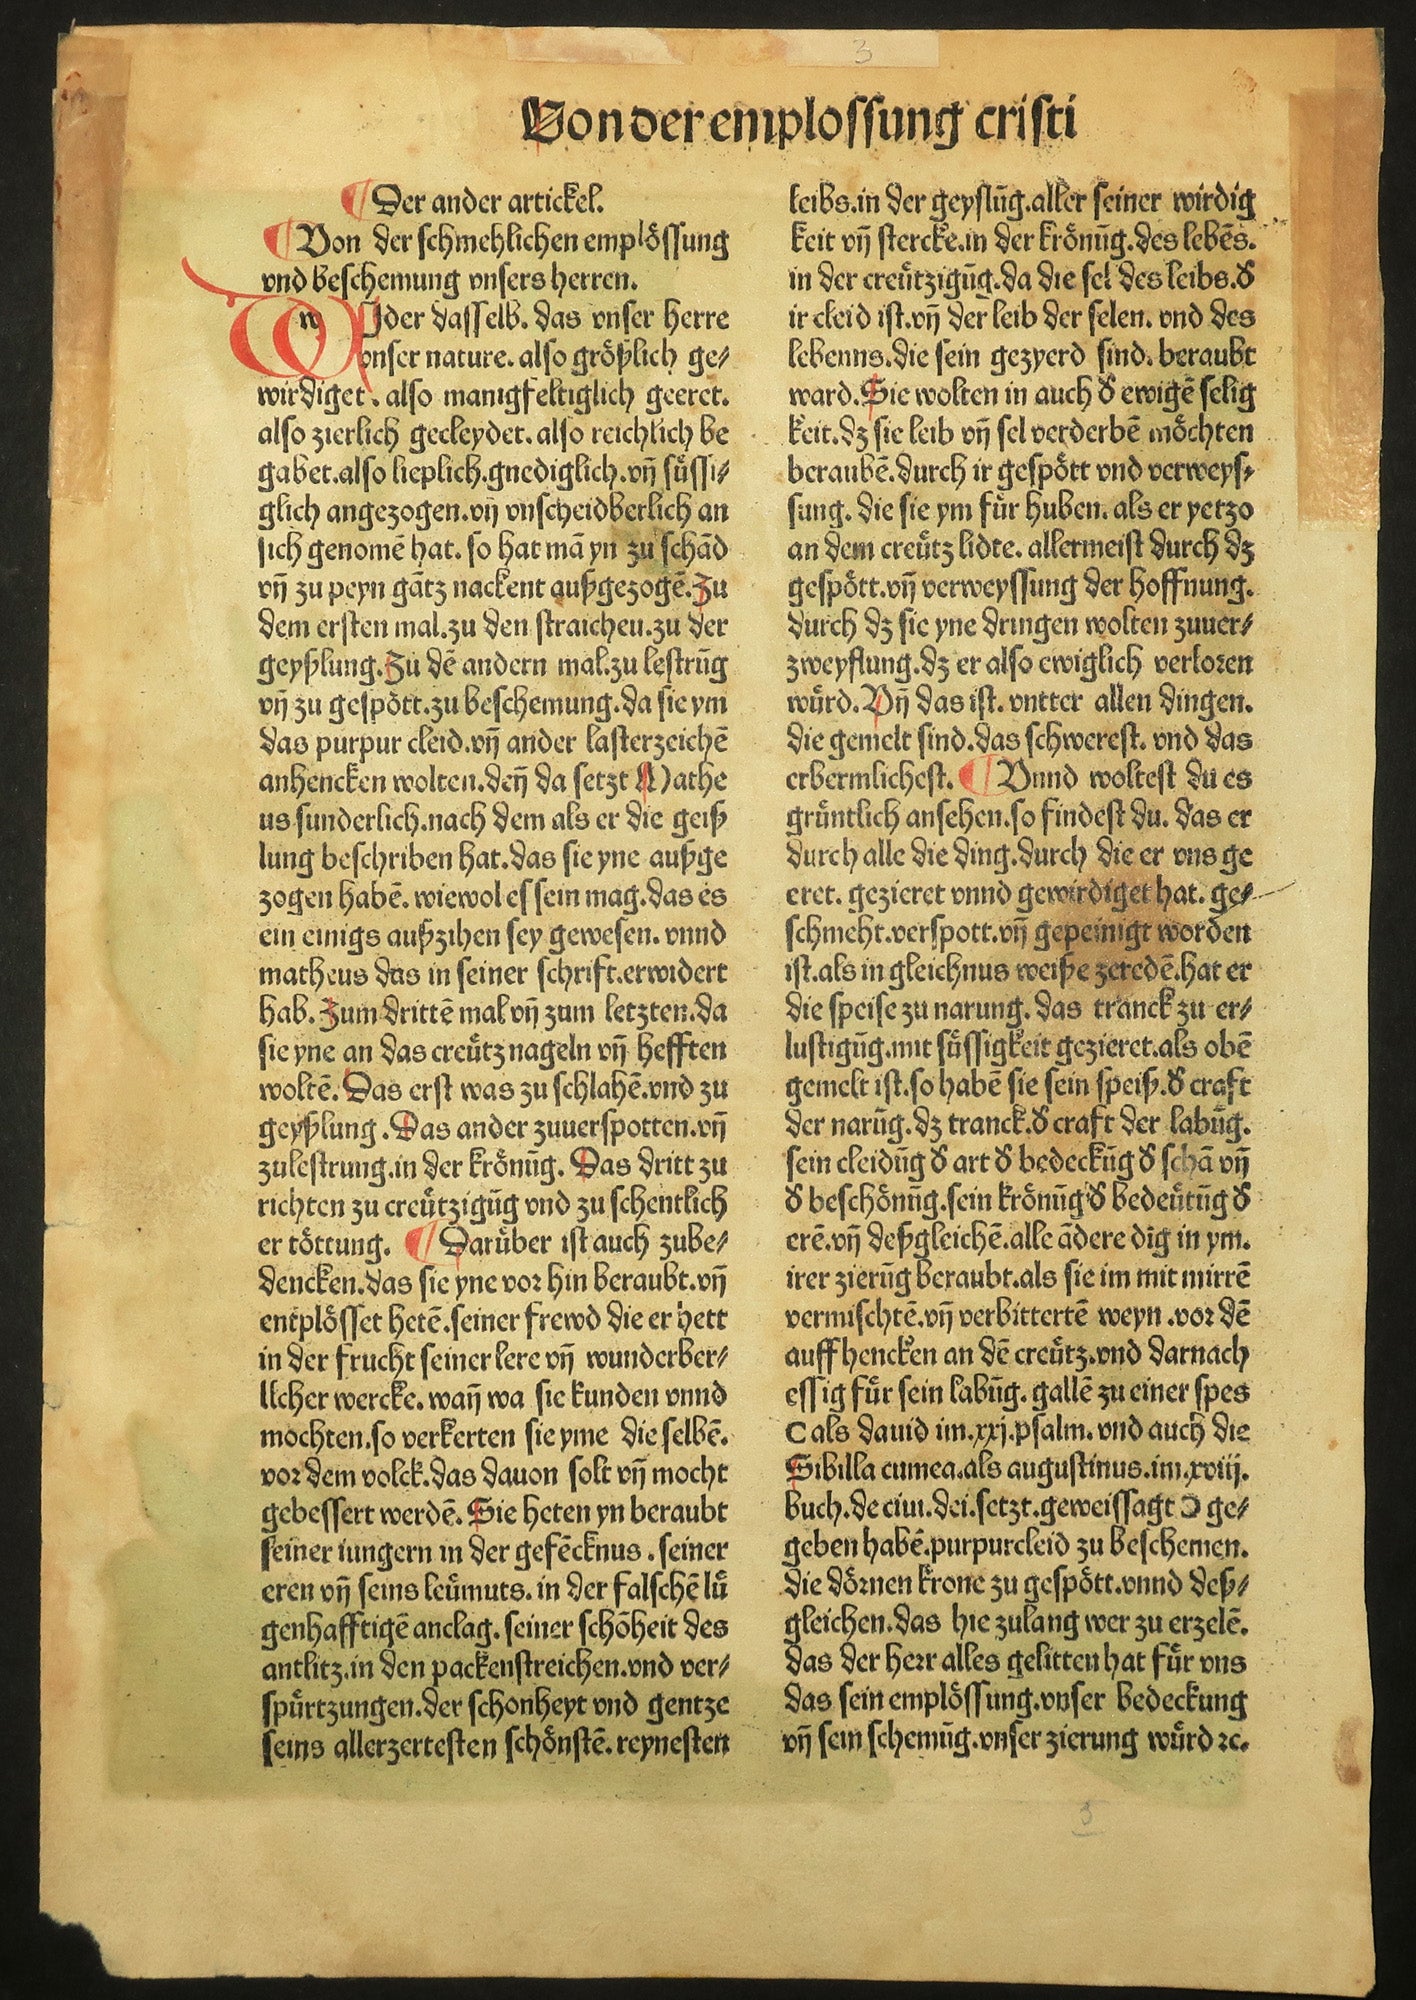 3
Von der emplossung cristi
¶ Der ander artickel.
¶ Von der schmehlichen emplössung
vnd beschemung vnsers herren.
wIder dasselb. das vnser herre
vnser nature. also größlich ge⸗
wirdiget. also manigfeltiglich geeret.
also zierlich gecleydet. also reichlich be
gabet. also lieplich. gnediglich. vñ süssi⸗
glich angezogen. vñ vnscheidberlich an
sich genomē hat. so hat mā yn zu schād
vñ zu peyn gātz nackent außgezogē. Zu
dem ersten mal. zu den straichen. zu der
geyßlung. Zu dē andern mal. zu lestrūg
vñ zu gespött. zu beschemung. da sie ym
das purpur cleid. vñ ander lasterzeichē
anhencken wolten. deñ da setzt Mathe
us sunderlich. nach dem als er die geiß
lung beschriben hat. das sie yne außge
zogen habē. wiewol es sein mag. das es
ein einigs außzihen sey gewesen. vnnd
matheus das in seiner schrift. erwidert
hab. Zum drittē mal vñ zum letzten. da
sie yne an das creütz nageln vñ hefften
woltē. Das erst was zu schlahē. vnd zu
geyßlung. Das ander zuuerspotten. vñ
zulestrung. in der krönūg. Das dritt zu
richten zu creützigūg vnd zu schentlich
er töttung. ¶ Darüber ist auch zube⸗
dencken. das sie yne vor hin beraubt. vñ
entplösset hetē. seiner frewd die er hett
in der frucht seiner lere vñ wunderber⸗
licher wercke. wañ wa sie kunden vnnd
mochten. so verkerten sie yme die selbē.
vor dem volck. das dauon solt vñ mocht
gebessert werdē. Sie heten yn beraubt
seiner iungern in der gefēcknus. seiner
eren vñ seins leümuts. in der falschē lü
genhafftigē anclag. seiner schōheit des
antlitz. in den packenstreichen. vnd ver⸗
spürtzungen. der schonheyt vnd gentze
seins allerzertesten schönstē. reynesten
leibs. in der geyslūg. aller seiner wirdig
keit vñ stercke. in der krönūg. des lebēs.
in der creützigūg. da die sel des leibs. ꝺ
ir cleid ist. vñ der leib der selen. vnd des
lebenns. die sein gezyerd sind. beraubt
ward. Sie wolten in auch ꝺ ewigē selig
keit. dz sie leib vñ sel verderbē möchten
beraubē. durch ir gespött vnd verweys⸗
sung. die sie ym für huben. als er yetzo
an dem creütz lidte. allermeist durch dz
gespött. vñ verweyssung der hoffnung.
durch dz sie yne dringen wolten zuuer⸗
zweyflung. dz er also ewiglich verloren
würd. Vñ das ist. vntter allen dingen.
die gemelt sind. das schwerest. vnd das
erbermlichest. ¶ Vnnd woltest du es
grüntlich ansehen. so findest du. das er
durch alle die ding. durch die er vns ge
eret. gezieret vnnd gewirdiget hat. ge⸗
schmeht. verspott. vñ gepeinigt worden
ist. als in gleichnus weiße zeredē. hat er
die speise zu narung. das tranck zu er⸗
lustigūg. mit süssigkeit gezieret. als obē
gemelt ist. so habē sie sein speiß. ꝺ craft
der narūg. dz tranck. ꝺ craft der labūg.
sein cleidūg ꝺ art ꝺ bedeckūg ꝺ schā vñ
ꝺ beschönūg. sein krönūg ꝺ bedeütūg ꝺ
erē. vñ deßgleichē. alle ādere dīg in ym.
irer zierūg beraubt. als sie im mit mirrē
vermischtē. vñ verbittertē weyn. vor dē
auff hencken an dē creütz. vnd darnach
essig für sein labūg. gallē zu einer speis
C als dauid im. xxj. psalm. vnd auch die
Sibilla cumea. als augustinus. im. xviij.
buch. de ciui. dei. setzt. geweissagt Ɔ ge⸗
geben habē. purpurcleid zu beschemen.
die dörnen krone zu gespött. vnnd deß⸗
gleichen. das hie zulang wer zu erzelē.
das der herr alles gelitten hat für vns
das sein emplössung. vnser bedeckung
vñ sein schemūg. vnser zierung würd ꝛc.
3